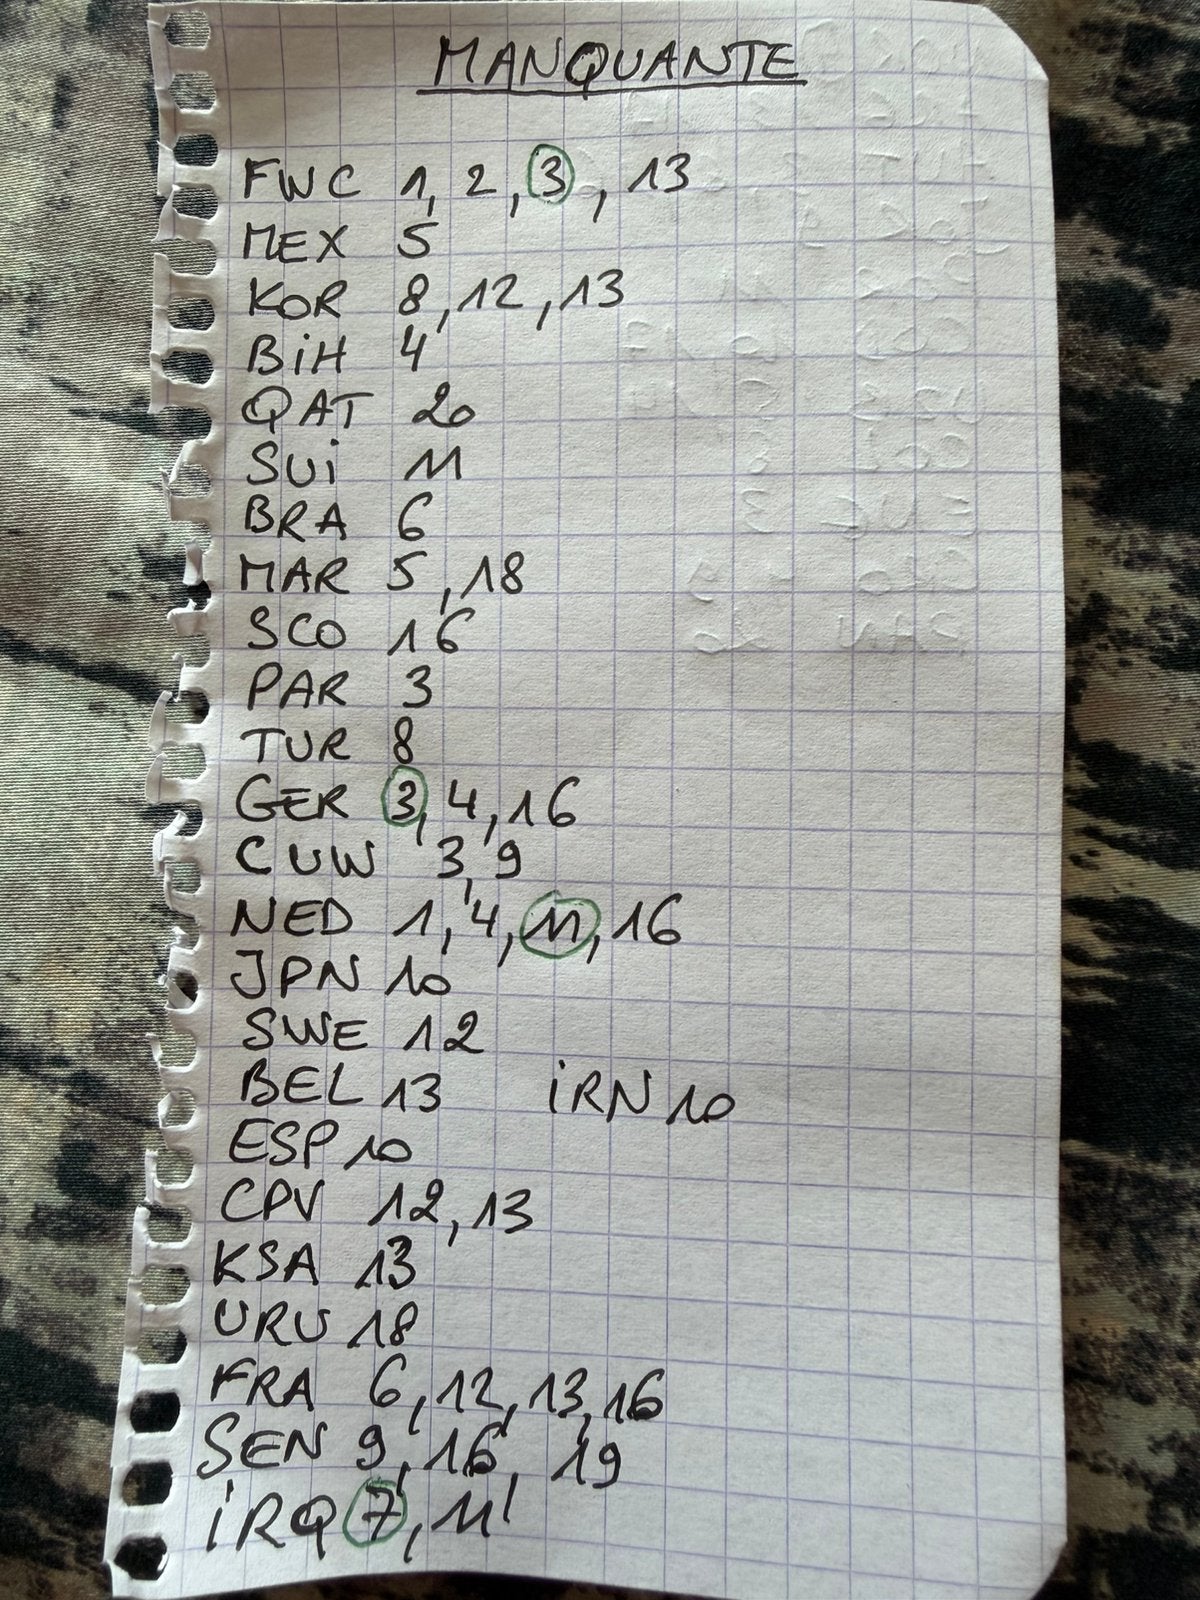 MANQUANTE
FWC 1, 2, 3, 13
MEX 5
KOR 8, 12, 13
BiH 4
QAT 20
SUi 11
BRA 6
MAR 5, 18
SCO 16
PAR 3
TUR 8
GER 3, 4, 16
CUW 3, 9
NED 1, 4, 11, 16
JPN 10
SWE 12
BEL 13 iRN 10
ESP 10
CPV 12, 13
KSA 13
URU 18
FRA 6, 12, 13, 16
SEN 9, 16, 19
iRQ 7, 11